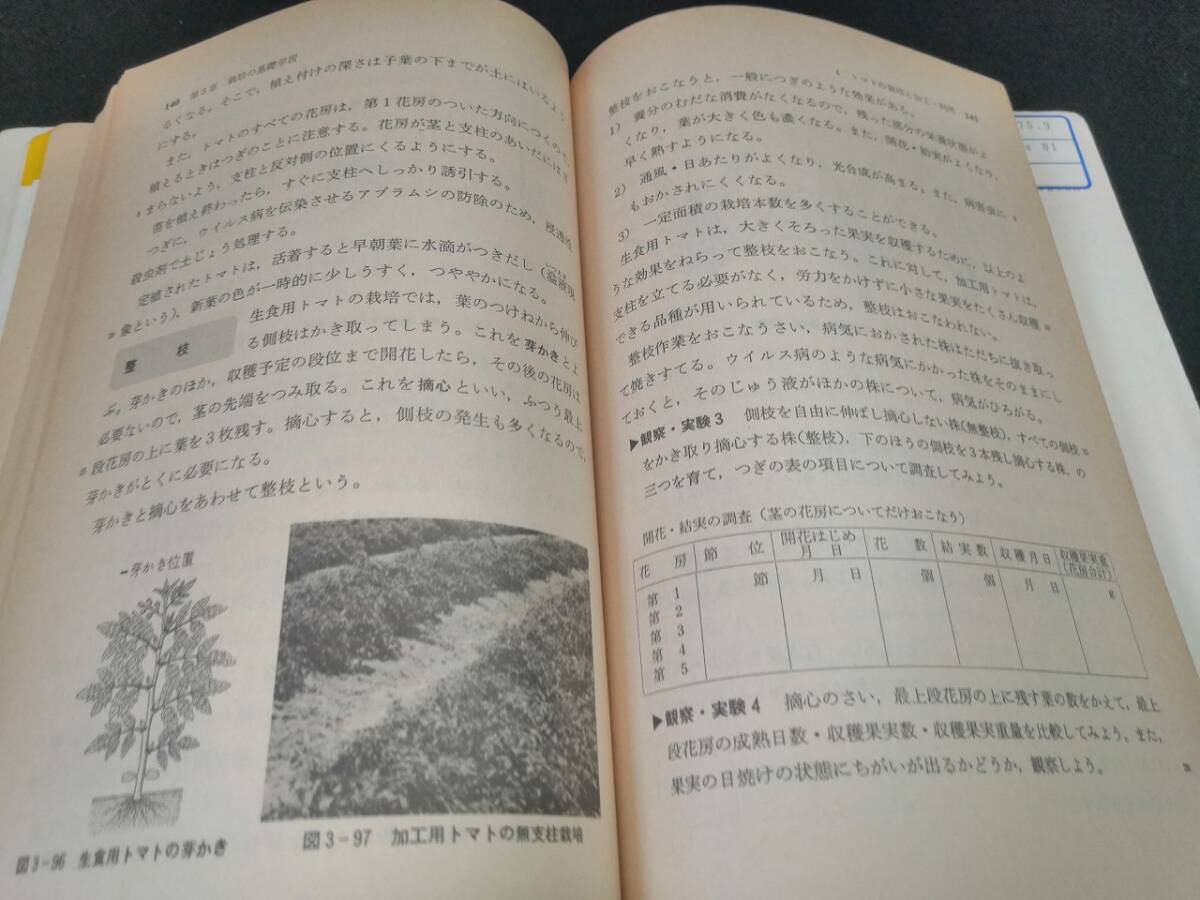 140 第3章 栽培の基礎学習
るくなる。そこで，植え付けの深さは子葉の下までが土にはいるよう
にする。
また，トマトのすべての花房は，第1花房のついた方向につくので，
植えるときはつぎのことに注意する。花房が茎と支柱のあいだにはさ
まらないよう，支柱と反対側の位置にくるようにする。
苗を植え終わったら，すぐに支柱へしっかり誘引する。
つぎに，ウイルス病を伝染させるアブラムシの防除のため，浸透性
殺虫剤で土じょう処理する。
定植されたトマトは，活着すると早朝葉に水滴がつきだし（溢液現
象という），新葉の色が一時的に少しうすく，つややかになる。
整 枝
生食用トマトの栽培では，葉のつけねから伸び
る側枝はかき取ってしまう。これを芽かきとよ
ぶ。芽かきのほか，収穫予定の段位まで開花したら，その後の花房は
必要ないので，茎の先端をつみ取る。これを摘心といい，ふつう最上
段花房の上に葉を3枚残す。摘心すると，側枝の発生も多くなるので，
芽かきがとくに必要になる。
芽かきと摘心をあわせて整枝という。
芽かき位置
図3-96 生食用トマトの芽かき
図3-97 加工用トマトの無支柱栽培
4 トマトの栽培と加工・利用 141
整枝をおこなうと，一般につぎのような効果がある。
1) 養分のむだな消費がなくなるので，残った部分の栄養状態がよ
くなり，葉が大きく色も濃くなる。また，開花・結実がよくなり，
早く熟すようになる。
2) 通風・日あたりがよくなり，光合成が高まる。また，病害虫に
もおかされにくくなる。
3) 一定面積の栽培本数を多くすることができる。
生食用トマトは，大きくそろった果実を収穫するために，以上のよ
うな効果をねらって整枝をおこなう。これに対して，加工用トマトは，
支柱を立てる必要がなく，労力をかけずに小さな果実をたくさん収穫
できる品種が用いられているため，整枝はおこなわれない。
整枝作業をおこなうさい，病気におかされた株はただちに抜き取っ
て焼きすてる。ウイルス病のような病気にかかった株をそのままにし
ておくと，そのじゅう液がほかの株について，病気がひろがる。
▶観察・実験3 側枝を自由に伸ばし摘心しない株(無整枝)，すべての側枝
をかき取り摘心する株(整枝)，下のほうの側枝を3本残し摘心する株，の
三つを育て，つぎの表の項目について調査してみよう。
開花・結実の調査（茎の花房についてだけおこなう）
花 房 節 位 開花はじめ 月 日 花 数 結実数 収穫月日 収穫果実重(花房合計)
第 1 節 月 日 個 個 月 日 g
第 2
第 3
第 4
第 5
▶観察・実験4 摘心のさい，最上段花房の上に残す葉の数をかえて，最上
段花房の成熟日数・収穫果実数・収穫果実重量を比較してみよう。また，
果実の日焼けの状態にちがいが出るかどうか，観察しよう。
75.9
81